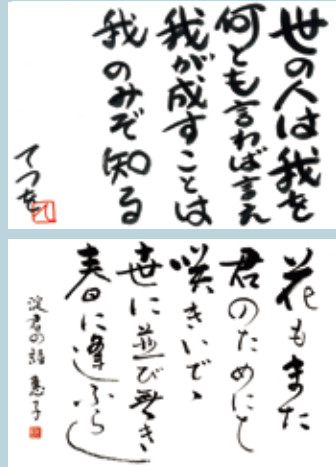 世の人は我を
何とも言わば言え
我が成すことは
我のみぞ知る
てつを
花もまた
君のためにと
咲きいでゝ
世に並び無き
春に逢ふらし
淀君の詠 惠子